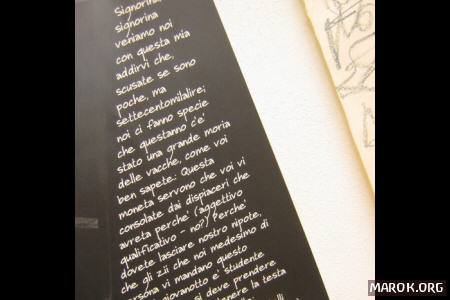 Signorina,
signorina
veniamo noi
con questa mia
addirvi che,
scusate se sono
poche, ma
settecentomilalire;
noi ci fanno specie
che questanno c'e'
stato una grande moria
delle vacche, come voi
ben sapete: Questa
moneta servono che voi vi
consolate dai dispiaceri che
avreta perche' (aggettivo
qualificativo - no?) Perche'
dovete lasciare nostro nipote,
che gli zii che noi medesimo di
persona vi mandano questo
giovanotto e' studente
si deve prendere
tenere la testa
MAROK.ORG